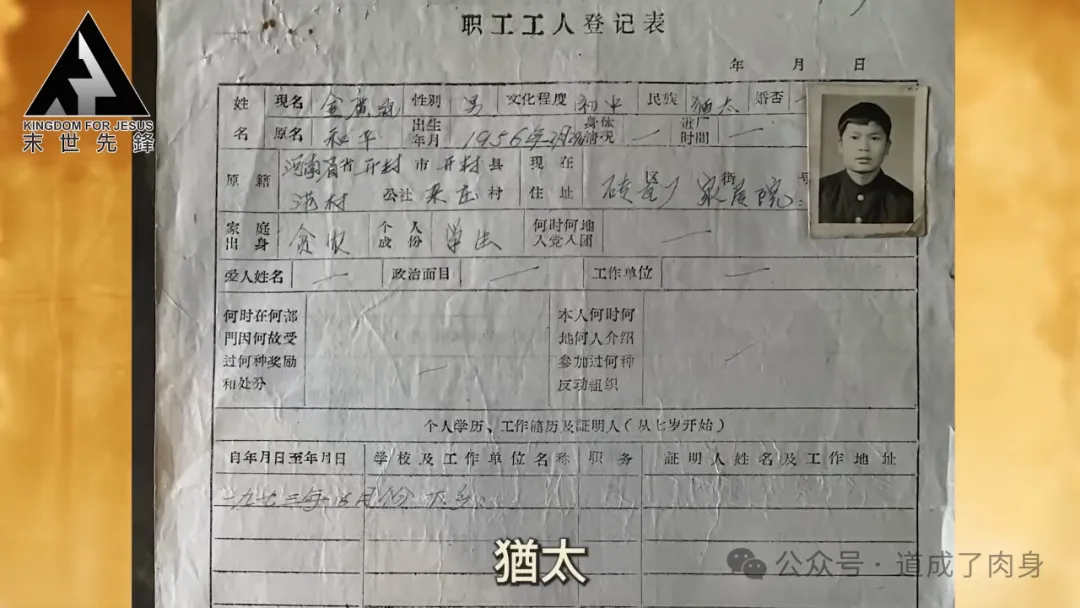 KINGDOM FOR JESUS
末世先鋒
职工工人登记表
年 月 日
姓名 现名 金 性别 男 文化程度 初中 民族 猶太 婚否
原名 和平 出生年月 1956年 身体情况 一 进厂時間 一
原籍 河南省省开封市开封县 现在住址 街 号
公社 村 家属院
家庭出身 贫农 个人成份 学生 何时何地入党入团 一
爱人姓名 一 政治面目 一 工作单位 一
何时在何部門因何故受过何种奖励和处分 一 本人何时何地何人介紹参加过何种反动組织 一
个人学历、工作簡历及証明人（从七岁开始）
自年月日至年月日 学校及工作单位名称 职务 証明人姓名及工作地址
一九七三年 月份 下乡
猶太
公众号·道成了肉身